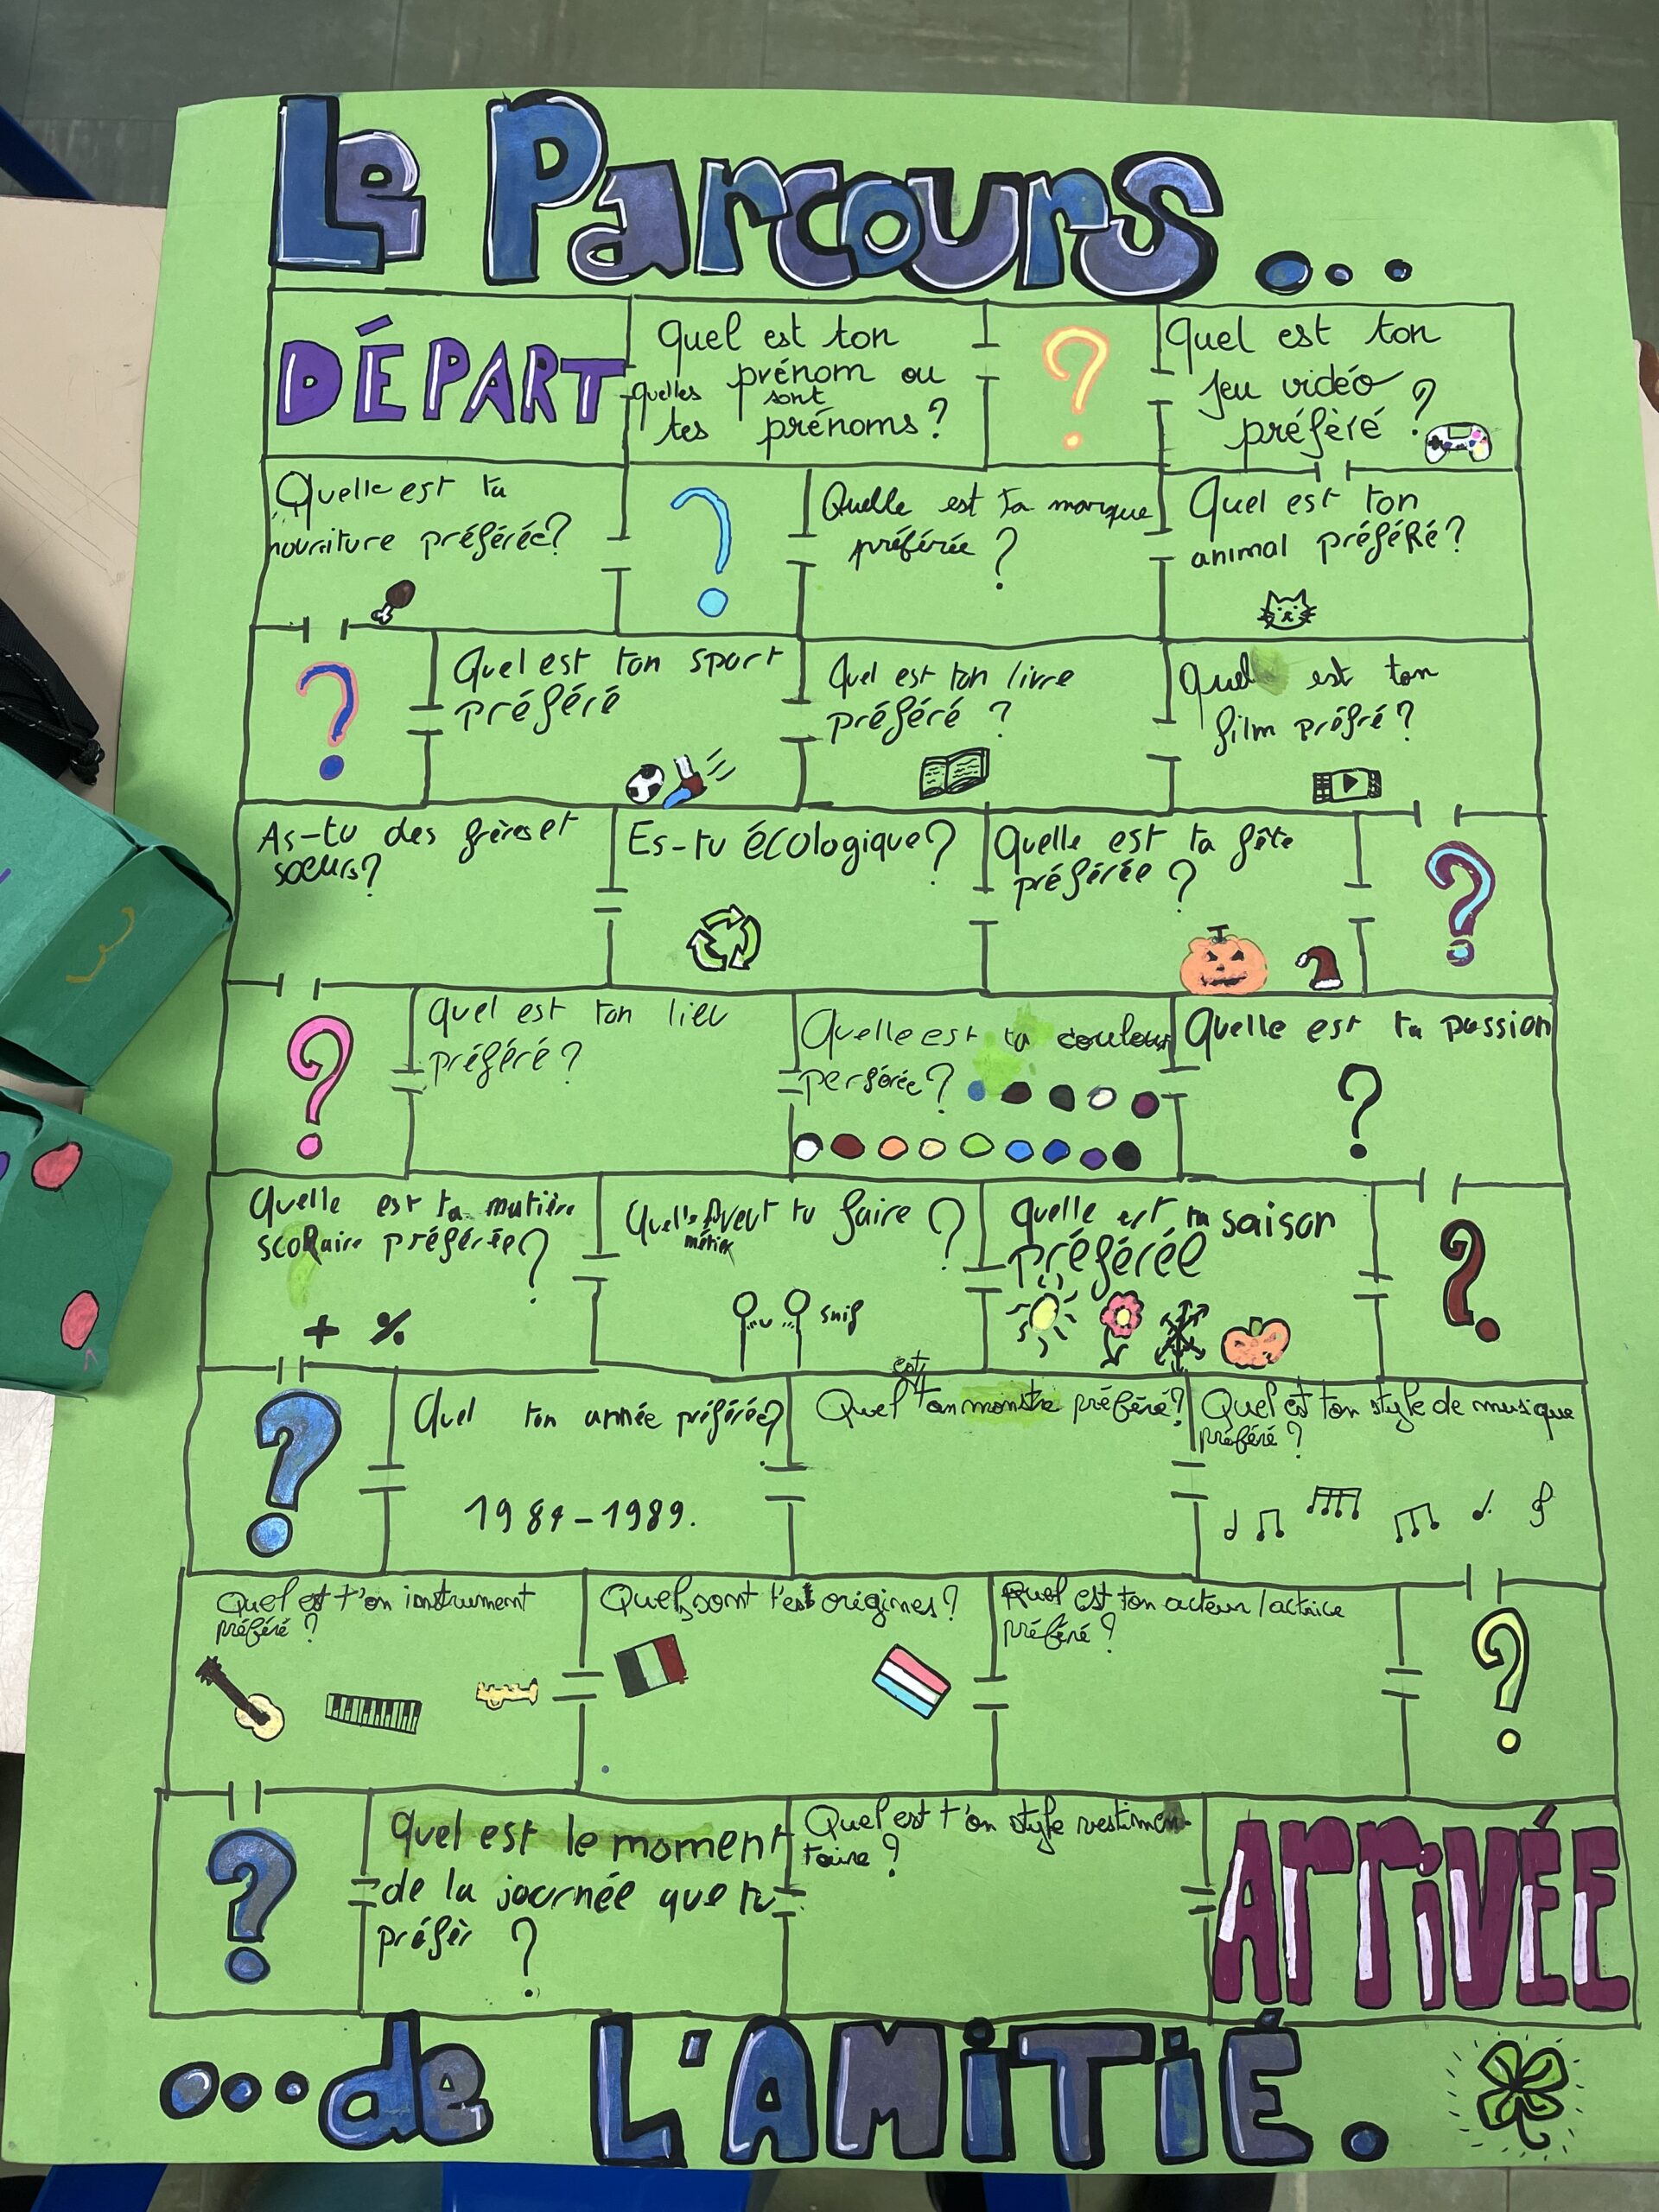 Le Parcours...
DÉPART
Quel est ton
prénom ou
quelles sont
tes prénoms?
?
Quel est ton
jeu vidéo
préféré ?
Quelle est ta
nourriture préférée?
?
Quelle est ta marque
préférée ?
Quel est ton
animal préféré?
?
Quel est ton sport
préféré
Quel est ton livre
préféré ?
Quel est ton
film préfré?
As-tu des frères et
soeurs?
Es-tu écologique?
Quelle est ta fête
préférée ?
?
?
Quel est ton lieu
préféré?
Quelle est ta couleur
perférée?
Quelle est ta passion
?
Quelle est ta matière
scolaire préférée?
+ %
veut tu faire ?
métier
snif
quelle est ta saison
préférée
?
?
Quel ton année préférée?
1984-1989.
est
Quel ton monstre préféré?
Quel est ton style de musique
préféré ?
Quel est t'on instrument
préféré ?
Quel sont t'es origines?
Quel est ton acteur/actrice
préféré ?
?
?
Quel est le moment
de la journée que tu
préfèr ?
Quel est t'on style vestimen-
taire ?
ARRIVÉE
...de L'AMITIÉ.